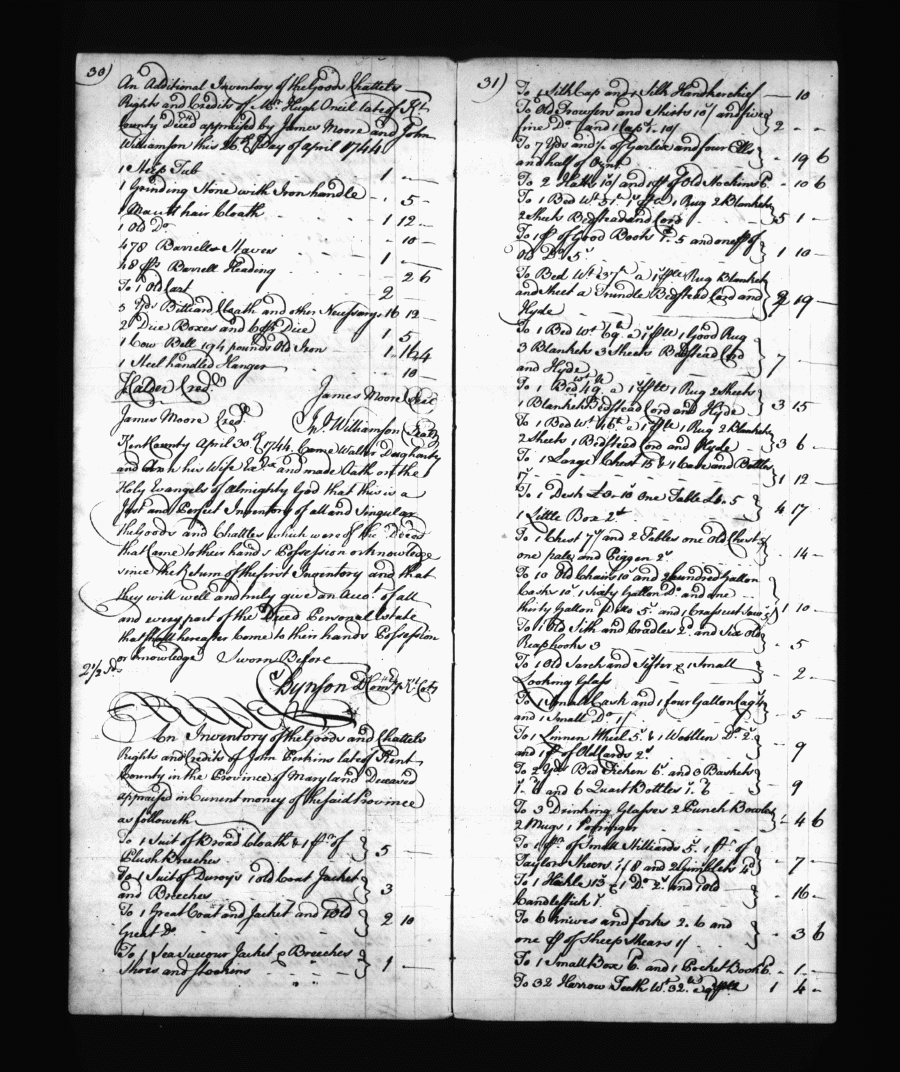 30)
An Additional Inventory of the Goods Chattels
Rights and Credits of Mr. Hugh Oneil late of Kt.
County Deced appraised by James Moore and John
Williamson this 26th Day of April 1744
1 Steep Tub 1 —
1 Grinding Stone with Iron handle - 5 -
1 hair Cloath 1 12 -
1 Old Do - 10 -
478 Barrell Staves 1 —
48 Barrell Heading 2 6
To 1 Old Cart 2 —
5 yds Billiard Cloath and other Necessarys 16 12 -
2 Dice Boxes and Dice 1 5
1 Cow Bell 194 pounds Old Iron 1 16 4
1 Steel handled Hanger - 10 -
James Moore
James Moore Cred. Jno Williamson
Kent County April 30th 1744. Came Walter Daugharty
and his Wife and made Oath on the
Holy Evangels of Almighty God that this is a
Just and Perfect Inventory of all and Singular
the Goods and Chattles which were of the Deced
that Came to their hands Possession or knowledge
since the Return of the first Inventory and that
they will well and truly give an Acco.t of all
and every part of the Deced Personal Estate
that shall hereafter Come to their hands Possession
or knowledge Sworn Before
2 1/2 Sds
Hynson
An Inventory of the Goods and Chattels
Rights and Credits of John Perkins late of Kent
County in the Province of Maryland Deceased
appraised in Current money of the said Province
as followeth
To 1 Suit of Broad Cloath & 1 pr. of
Plush Breeches 5 —
To 1 Suit of Duroy's 1 old Coat Jacket
and Breeches 3
To 1 Great Coat and Jacket and 1 Old
Great Do. 2 10
To 1 Jacket & Breeches
Shoes and Stockens 1 —
31)
To 1 Silk Cap and 1 Silk Handkerchief - 10
To Old Trowsers and Shirts 10/ and five
fine Do. and 1 Cap 10/ 2 - -
To 7 Yds and ½ of Garlix and four Ells
and half of - 19 6
To 2 Hatts 10/ and 1 pr of Old Stockins 6. - 10 6
To 1 Bed Wt 51. 1 Rug 2 Blankets
2 Sheets Bedstead and Cord 5 1 -
To 1 pr of Good Boots 5 and one pr of
Old Do. 5 1 10 -
To Bed Wt 37 a Rug Blanket
and Sheet a Trundle Bedstead Cord and
Hyde 2 19 —
To 1 Bed Wt 69 1 Good Rug
3 Blankets 3 Sheets Bedstead Cord
and Hyde 7 - -
To 1 Bed 49 1 Rug 2 Sheets
1 Blanket Bedstead Cord and Hyde 3 15
To 1 Bed Wt 46 1 Rug 2 Blankets
2 Sheets 1 Bedstead Cord and Hyde 3 6 -
To 1 Large Chest 15 & 1 Case and Bottles
17 1 12 -
To 1 Desk £3. 10 One Table £1. 5
1 Little Box 2d. 4 17
To 1 Chest 7d and 2 Tables one Old Chest 5
one pale and Piggen 2s - 14 -
To 10 Old Chairs 10 and 2 hundred Gallon
Casks 10. 1 Sixty Gallon Do. and one
thirty Gallon 5. and 1 Crosscut Saw 1 10 -
To 1 Old Sith and Cradles 2. and Six Old
Reaphooks 3 - 5
To 1 Old Search and Sifter & 1 Small
Looking Glass - 2 -
To 1 Small Cask and 1 four Gallon Cagg
and 1 Small Do. 1/ - 5
To 1 Linnen Wheel 5. & 1 Woollen Do. 2.
and 1 pr of Old Cards 2. - 9
To 2 Yds Bed Ticken 6. and 3 Baskets
and 6 Quart Bottles - 9
To 3 Drinking Glasses 2 Punch Bowles
2 Mugs 1 Porringer - 4 6
To 1 pr. of Small Stilliards 5. 1 pr. of
Taylors Shears 1/8 and 2 Gimblets 4d - 7 -
To 1 Hackle 13. & 1 Do. 2. and 1 Old
Candlestick 1. - 16 -
To 6 knives and forks 2. 6 and
one pr of Sheep Shears 1/ - 3 6
To 1 Small Box 6. and 1 Pocket Book 6. - 1 -
To 32 Harrow Teeth Wt. 32. 1 4 -